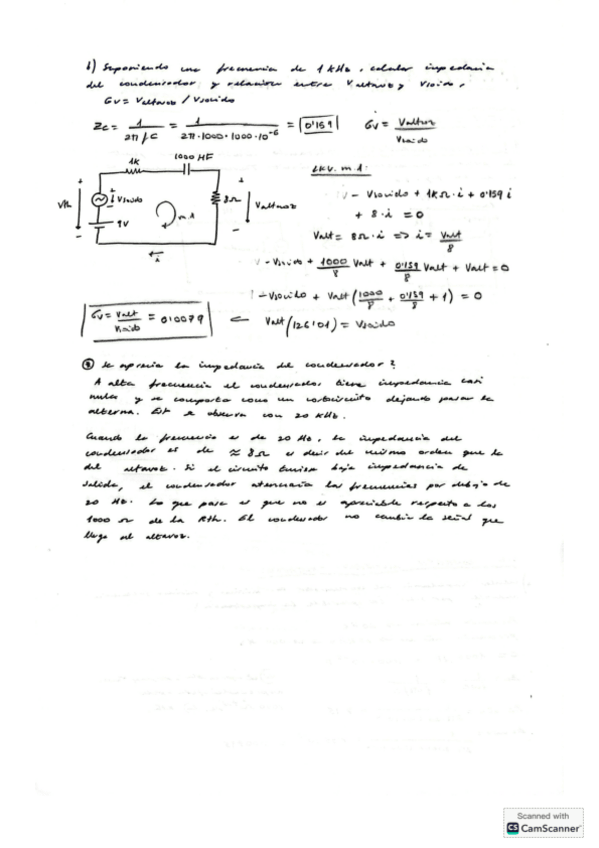 b) Suponiendo una frecuencia de 1 kHz, calcular impedancia
del condensador y relación entre Valtavoz y Vsonido.
Gv = Valtavoz / Vsonido
Zc = 1 / 2πfC = 1 / 2π·1000·1000·10⁻⁶ = 0'159
Gv = Valtavoz / Vsonido
1K 1000 μF
Vth + - + Vsonido 9V m.1 8Ω + Valtavoz - i
LKV. m.1:
- Vsonido + 1KΩ·i + 0'159 i
+ 8·i = 0
Valt = 8Ω·i => i = Valt / 8
- Vsonido + 1000/8 Valt + 0'159/8 Valt + Valt = 0
- Vsonido + Valt (1000/8 + 0'159/8 + 1) = 0
Gv = Valt / Vsonido = 0'0079 ⇐ Valt (126'01) = Vsonido
Se aprecia la impedancia del condensador?
A alta frecuencia el condensador tiene impedancia casi
nula y se comporta como un cortocircuito dejando pasar la
alterna. Est se observa con 20 kHz.
Cuando la frecuencia es de 20 Hz, la impedancia del
condensador es de ≈ 8Ω es decir del mismo orden que la
del altavoz. Si el circuito tuviese baja impedancia de
salida, el condensador atenuaría las frecuencias por debajo de
20 Hz. Lo que pasa es que no es apreciable respecto a los
1000 Ω de la Rth. El condensador no cambia la señal que
llega al altavoz.
Scanned with
CS CamScanner